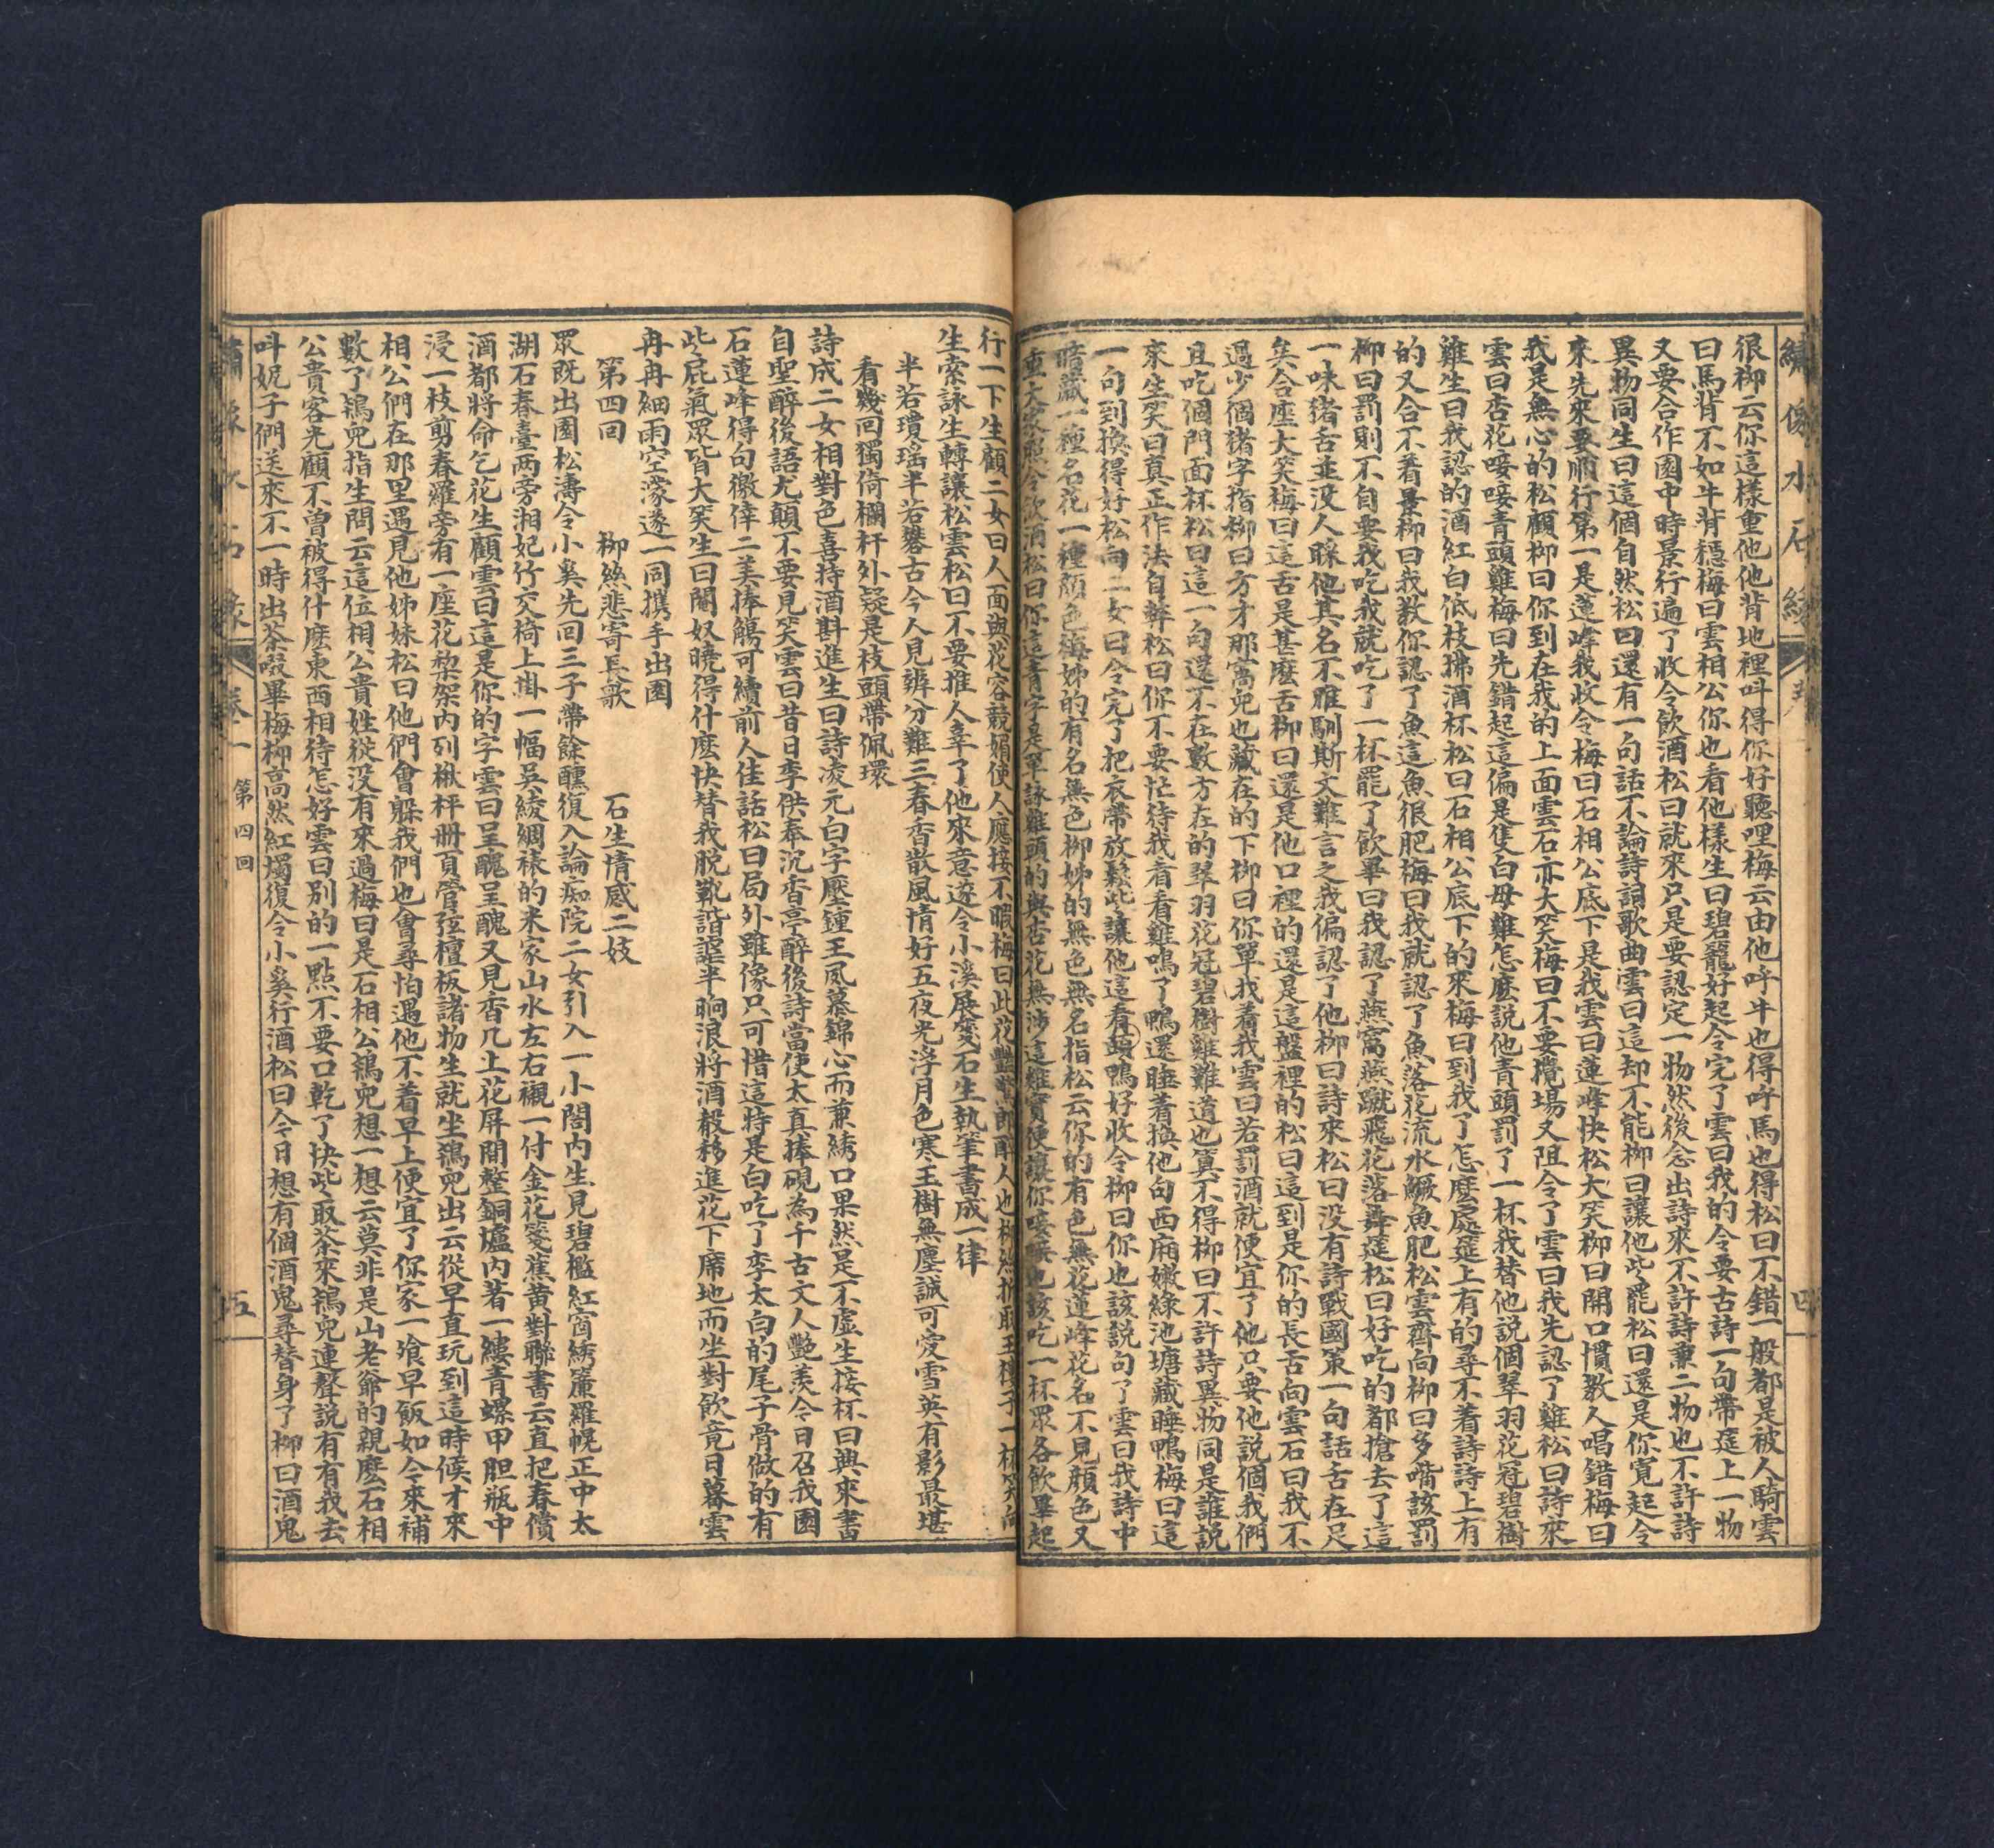 繡像水石緣
四
很柳云你這樣重他他背地裡呌得你好聽哩梅云由他呼牛也得呼馬也得松曰不錯一般都是被人騎雲
曰馬背不如牛背穩梅曰雲相公你也看他樣生曰碧籠好起令完了雲曰我的令要古詩一句帶筵上一物
又要合作園中時景行遍了收令飲酒松曰就來只是要認定一物然後念出詩來不許詩兼二物也不許詩
異物同生曰這個自然松曰還有一句話不論詩詞歌曲雲曰這却不能柳曰讓他些罷松曰還是你寛起令
來先來要順行第一是蓮峰我收令梅曰石相公底下是我雲曰蓮峰快松大笑柳曰開口慣教人唱錯梅曰
我是無心的松顧柳曰你到在我的上面雲石亦大笑梅曰不要攪場又阻令了雲曰我先認了雞松曰詩來
雲曰杏花唼唼青頭雞梅曰先錯起這偏是隻白母雞怎麽説他青頭罰了一杯我替他説個翠羽花冠碧樹
雞生曰我認的酒紅白低枝拂酒杯松曰石相公底下的來梅曰到我了怎麽處筵上有的尋不着詩詩上有
的又合不着景柳曰我教你認了魚這魚很肥梅曰我就認了魚落花流水鱖魚肥松雲齊向柳曰多嘴該罰
柳曰罰則不自要我吃我就吃了一杯罷了飲畢曰我認了燕窩燕蹴飛花落舞筵松曰好吃的都搶去了這
一味猪舌並没人睬他其名不雅馴斯文難言之我偏認了他柳曰詩來松曰没有詩戰國策一句話舌在足
矣合座大笑梅曰這舌是甚麽舌柳曰還是他口裡的還是這盤裡的松曰這到是你的長舌向雲石曰我不
過少個猪字指柳曰方才那窩兒也藏在的下柳曰你單找着我雲曰若罰酒就便宜了他只要他説個我們
且吃個門面杯松曰這一句還不在數方在的翠羽花冠碧樹雞難道也算不得柳曰不許詩異物同是誰説
來生笑曰真正作法自斃松曰你不要忙待我看看雞鳴了鴨還睡着換他句西廂嫩綠池塘藏睡鴨梅曰這
一句到換得好松向二女曰令完了把衣帶放鬆些讓他這看頭鴨好收令柳曰你也該説句了雲曰我詩中
暗藏一種名花一種顏色梅姊的有名無色柳姊的無色無名指松云你的有色無花蓮峰花名不見顏色又
行一下生顧二女曰人面與花容競媚使人應接不暇梅曰此花豔
生索詠生轉讓松雲松曰不要推人辜了他來意遊令小溪展箋石生執筆書成一律
半若瓊瑤半若礬古今人見辨分難三春香散風情好五夜光浮月色寒玉樹無塵誠可愛雪英有影最堪
看幾回獨倚欄杆外疑是枝頭帶佩環
詩成二女相對色喜持酒斟進生曰詩凌元白字壓鍾王風慕錦心而兼綉口果然是不虛生接杯曰興來書
自聖醉後語尤顛不要見笑雲曰昔日李供奉沉香亭醉後詩當使太真捧硯為千古文人艷羡今日召我園
石蓮峰得句徼倖二美捧觴可續前人佳話松曰局外雖像只可惜這特是白吃了李太白的尾子骨做的有
些屁氣眾皆大笑生曰閹奴曉得什麽快替我脱靴諧謔半晌浪將酒殽移進花下席地而坐對飲竟日暮雲
冉冉細雨空濛遂一同携手出園
第四回　　柳絲悲寄長歌　　石生情感二妓
眾既出園松濤令小奚先回三子帶餘醺復入論痴院二女引入一小閤内生見碧檻紅窗綉簾羅幌正中太
湖石春臺兩旁湘妃竹交椅上掛一幅吳綾綢裱的米家山水左右襯一付金花箋蕉黄對聯書云直把春償
酒都將命乞花生顧雲曰這是你的字雲曰呈醜呈醜又見香几上花屏間盤銅爐内著一縷青螺甲胆瓶中
浸一枝剪春羅旁有一座花梨架内列楸枰册頁管弦檀板諸物生就坐鴇兒出云從早直玩到這時候才來
相公們在那里遇見他姊妹松曰他們會躲我們也會尋怕遇他不着早上便宜了你家一飡早飯如今來補
數了鴇兒指生問云這位相公貴姓從没有來過梅曰是石相公鴇兒想一想云莫非是山老爺的親麽石相
公貴客光顧不曾被得什麽東西相待怎好雲曰别的一點不要口乾了快些取茶來鴇兒連聲説有有我去
呌妮子們送來不一時出茶啜畢梅柳高燃紅燭復令小奚行酒松曰今日想有個酒鬼尋替身了柳曰酒鬼
卷一　第四回　五